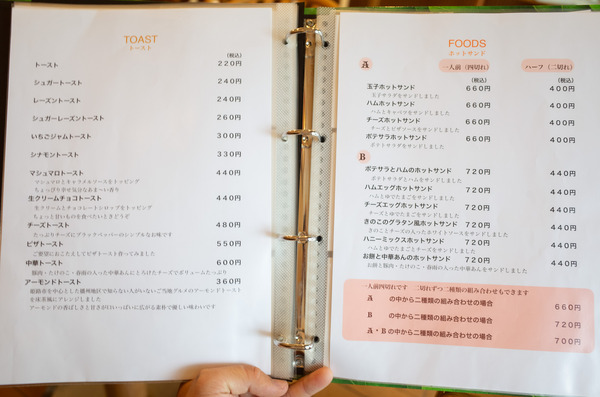 TOAST
トースト
(税込)
トースト 220円
シュガートースト 240円
レーズントースト 240円
シュガーレーズントースト 260円
いちごジャムトースト 300円
シナモントースト 330円
マシュマロトースト 440円
マシュマロとキャラメルソースをトッピング
ちょっぴり幸せ気分なあま〜い香り
生クリームチョコトースト 440円
生クリームとチョコレートシロップをトッピング
ちょっと甘いものを食べたいときどうぞ
チーズトースト 480円
たっぷりチーズにブラックペッパーのシンプルなお味です
ピザトースト 550円
ご要望におこたえしてピザトースト作ってみました
中華トースト 600円
豚肉・たけのこ・春雨の入った中華あんにとろけたチーズでボリュームたっぷり
アーモンドトースト 360円
姫路市を中心とした播州地区で知らない人がいないご当地グルメのアーモンドトースト
を抹茶風にアレンジしました
アーモンドの香ばしさと甘さが口いっぱいに広がる素朴で優しい味わいです
FOODS
ホットサンド
A 一人前(四切れ) ハーフ(二切れ)
(税込) (税込)
玉子ホットサンド 660円 400円
玉子サラダをサンドしました
ハムホットサンド 660円 400円
ハムとキャベツをサンドしました
チーズホットサンド 660円 400円
チーズとピザソースをサンドしました
ポテサラホットサンド 660円 400円
ポテトサラダをサンドしました
B
ポテサラとハムのホットサンド 720円 440円
ポテトサラダとハムをサンドしました
ハムエッグホットサンド 720円 440円
ハムとゆでたまごをサンドしました
チーズエッグホットサンド 720円 440円
チーズとゆでたまごをサンドしました
きのこのグラタン風ホットサンド 720円 440円
きのことチーズの入ったホワイトソースをサンドしました
ハニーミックスホットサンド 720円 440円
ハムとゆでたまごとチーズをサンドしました
お餅と中華あんのホットサンド 720円 440円
お餅と豚肉・たけのこ・春雨の入った中華あんをサンドしました
一人前四切れです 二切れずつ二種類の組み合わせもできます
A の中から二種類の組み合わせの場合 660円
B の中から二種類の組み合わせの場合 720円
A・Bの中から二種類の組み合わせの場合 700円